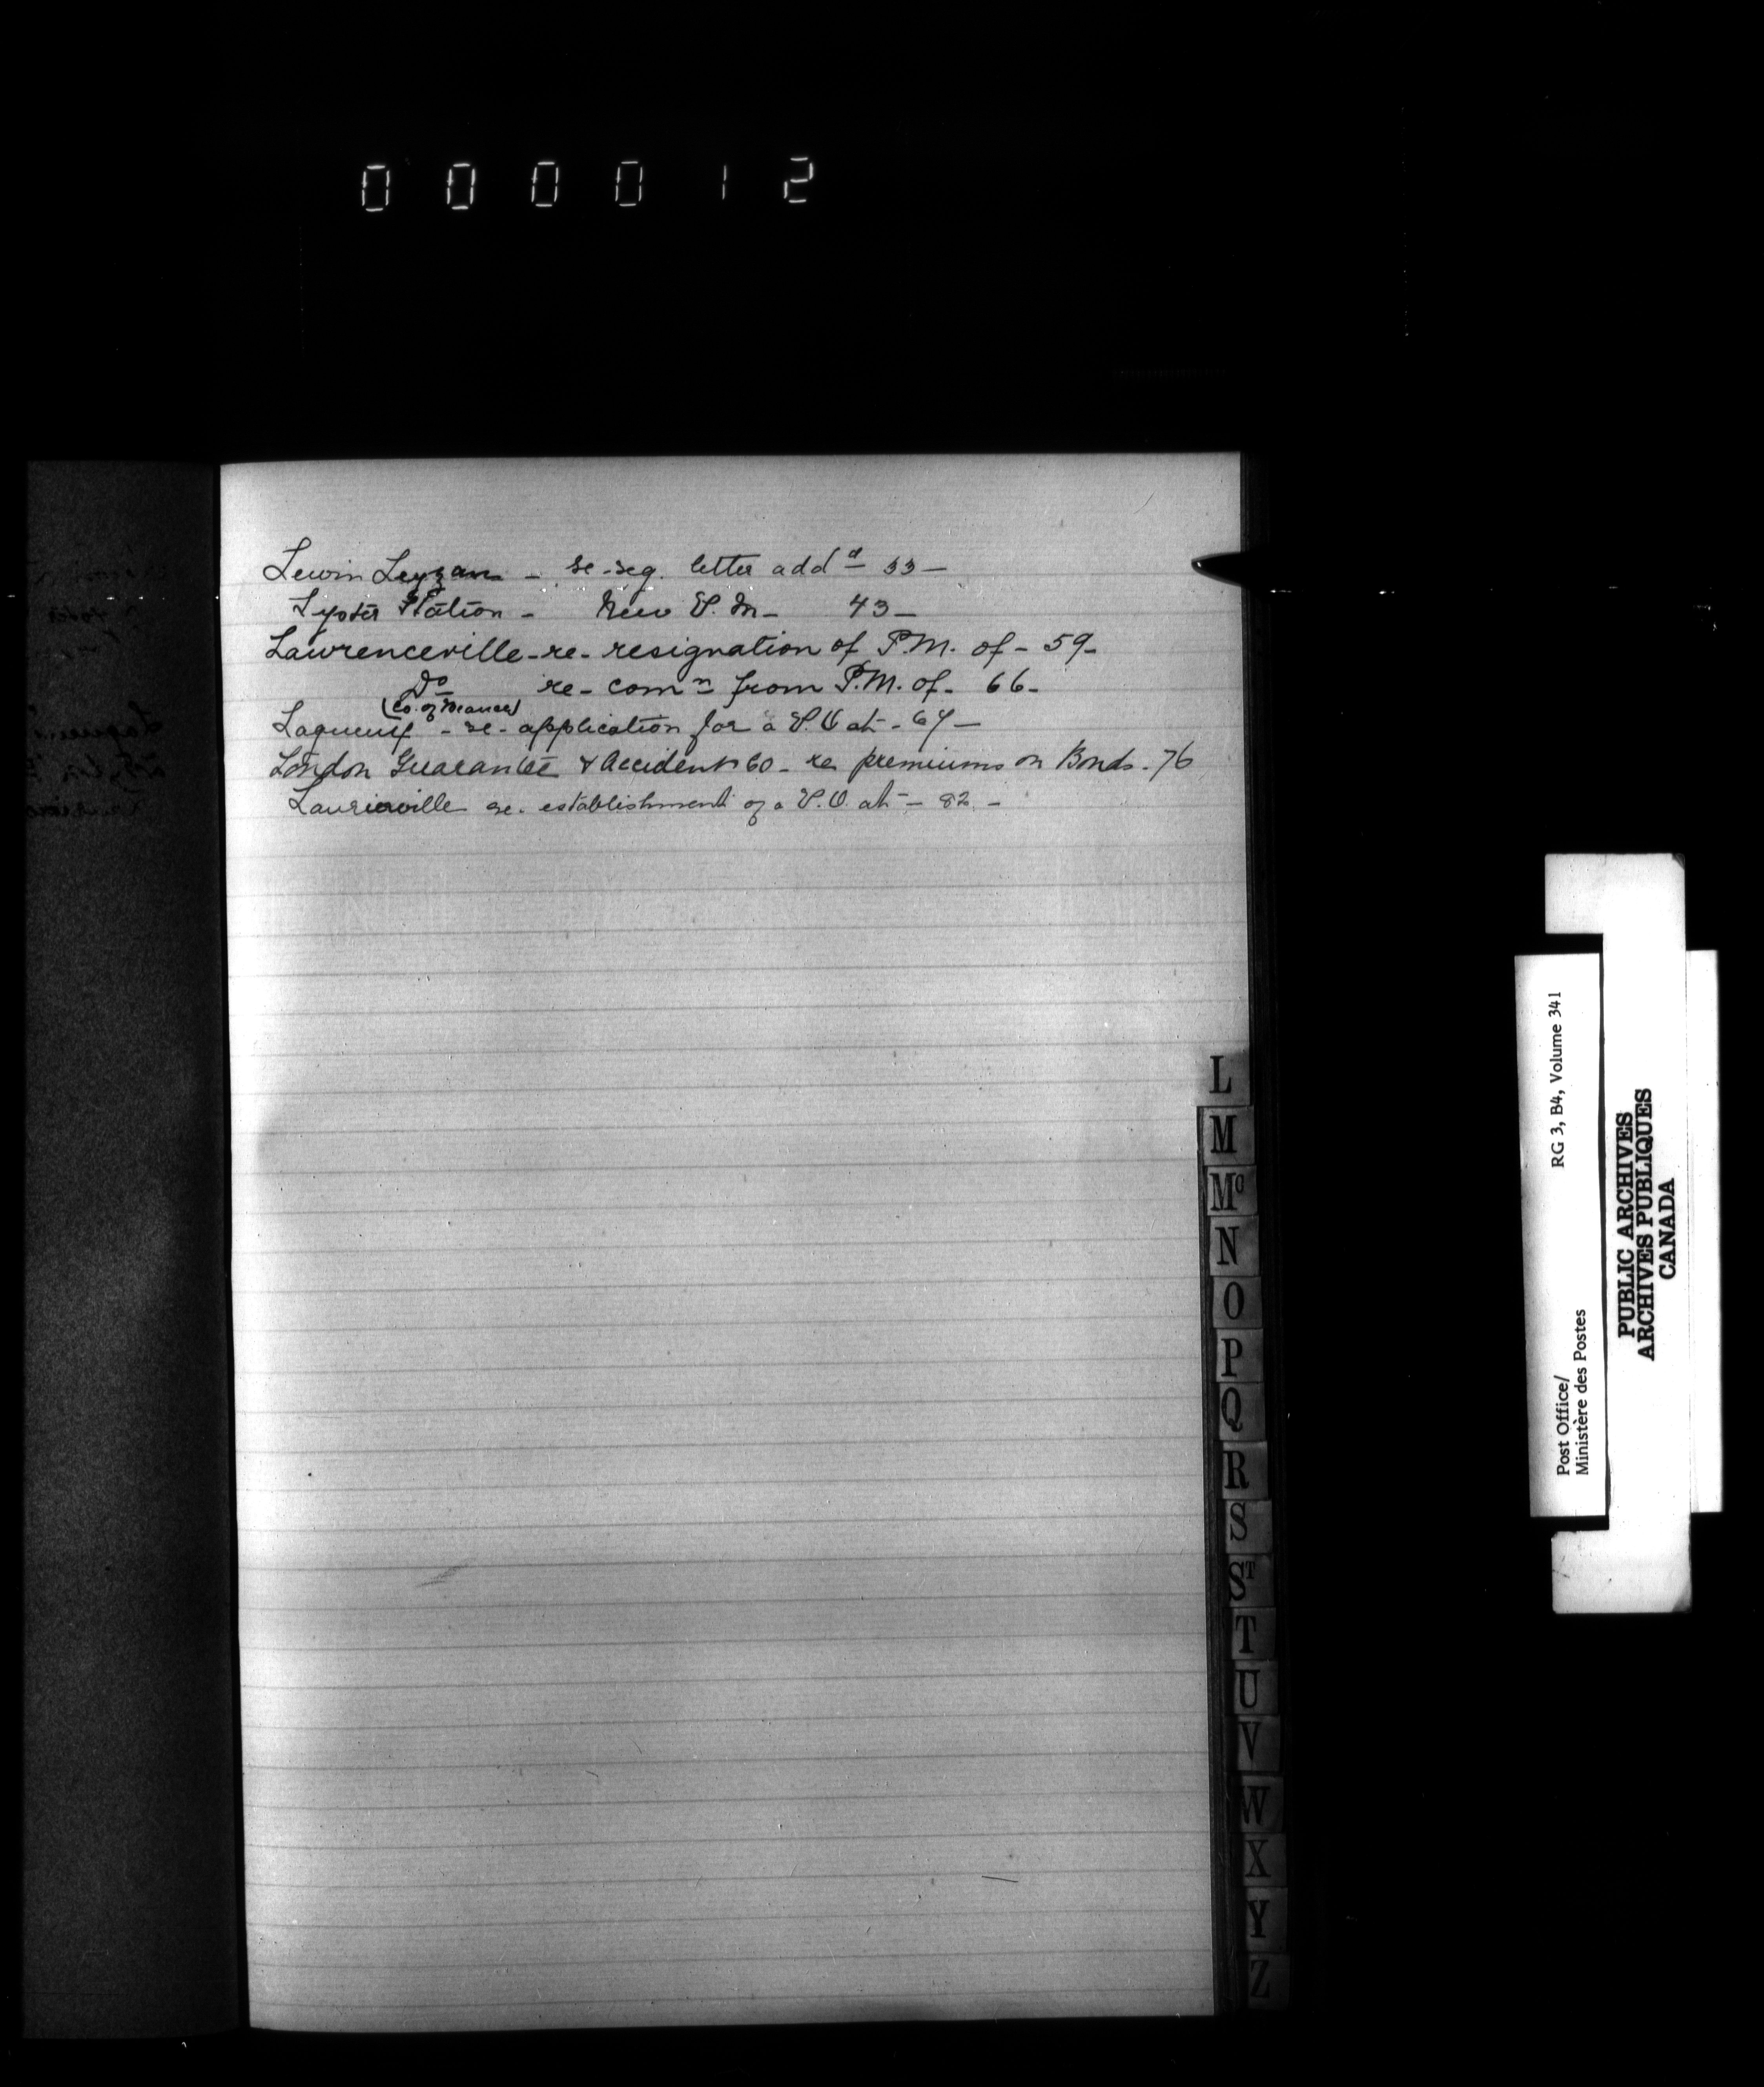 000012
Lewin Leyzan - re-reg. letter addd 33-
Lyster Station - New P.M- 43-
Lawrenceville-re-resignation of P.M. of- 59-
Do re-comn from P.M. of- 66-
(Co. of Beauce)
Laqueux - re- application for a P.O at- 67-
London Guarantee & Accident Co- re premiums on Bonds-76
Laurierville re. establishment of a P.O. at- 82-
L
M
Mc
N
O
P
Q
R
S
ST
T
U
V
W
X
Y
Z
Post Office/
Ministère des Postes
RG 3, B4, Volume 341
PUBLIC ARCHIVES
ARCHIVES PUBLIQUES
CANADA